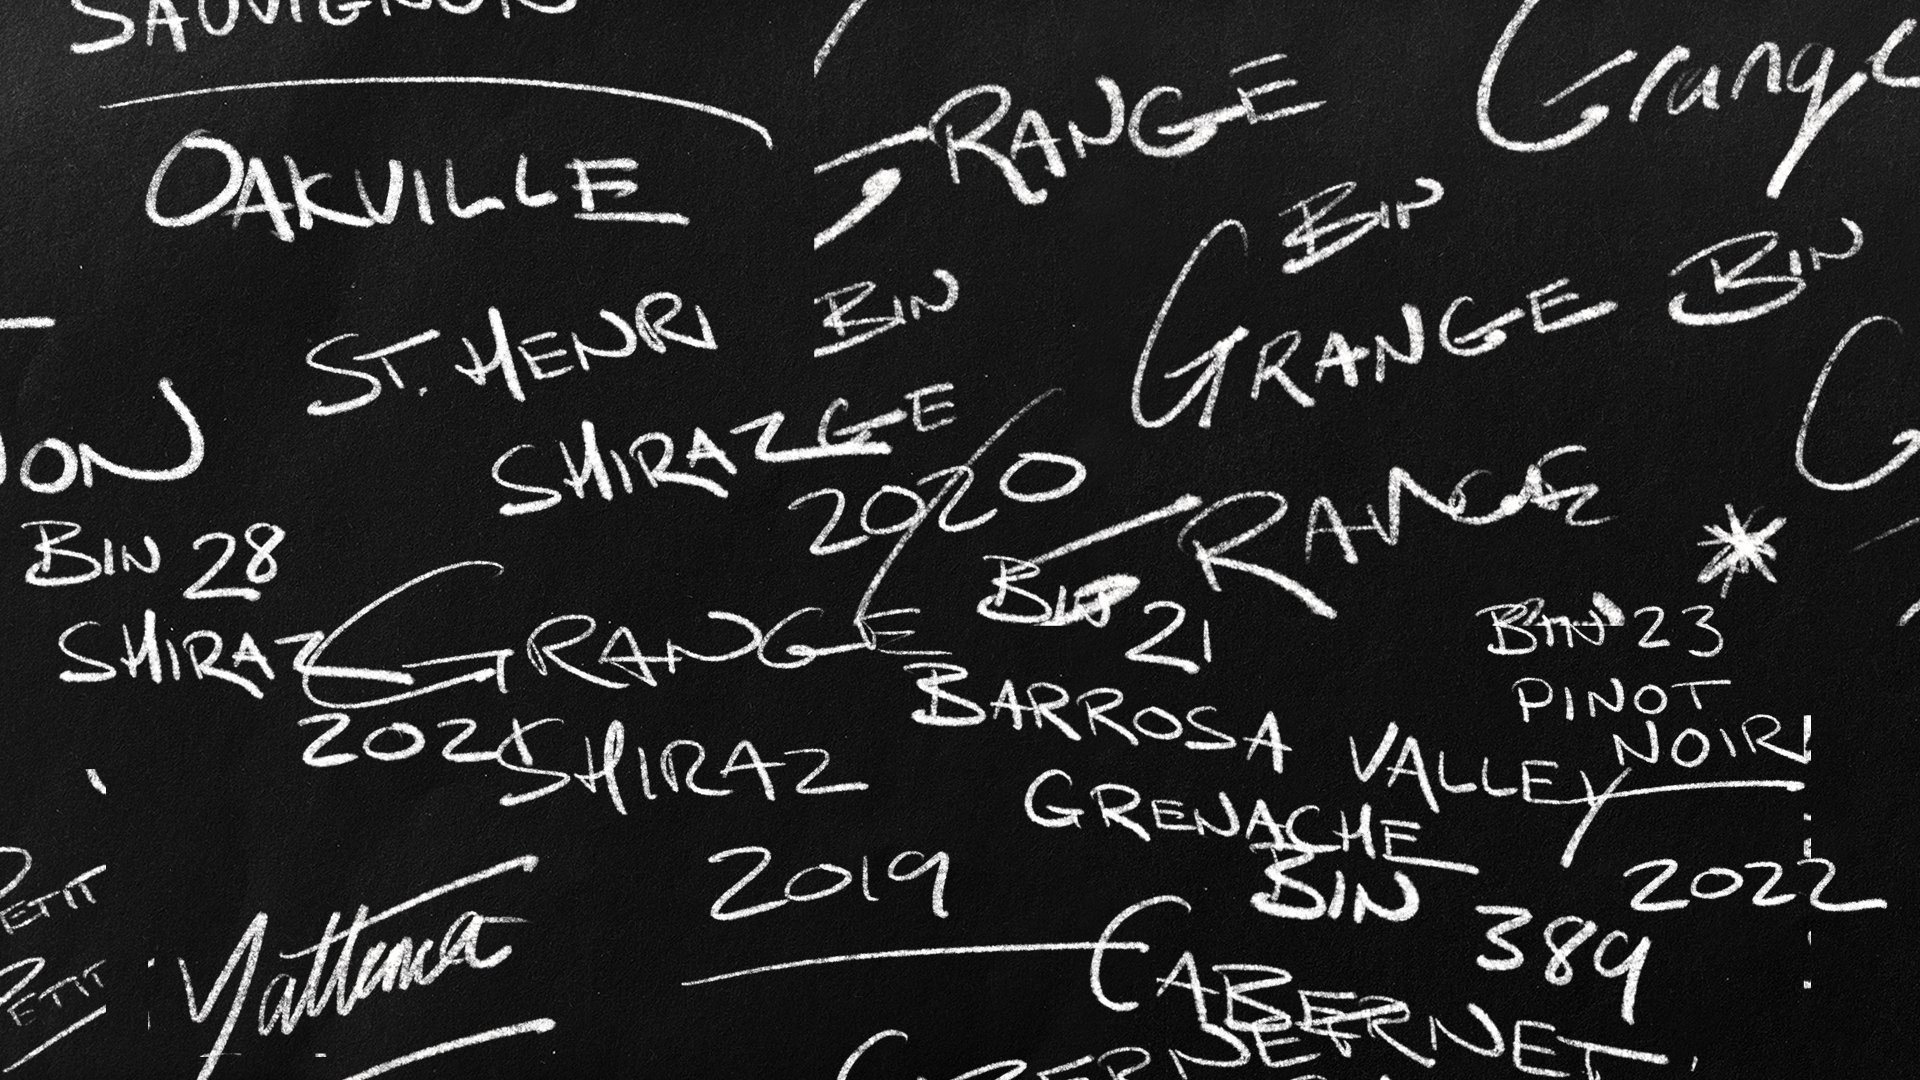 SAUVIGNON
OAKVILLE
GRANGE
Grange
BIN
GRANGE
BIN
ST. HENRI
BIN
SHIRAZ
GE
2020
RANGE
BIN 28
SHIRAZ
2021
GRANGE
SHIRAZ
2019
BIN 21
BARROSA VALLEY
GRENACHE
2022
BIN 23
PINOT
NOIR
BIN 389
CABERNET
PETIT
PETIT
Yattarna